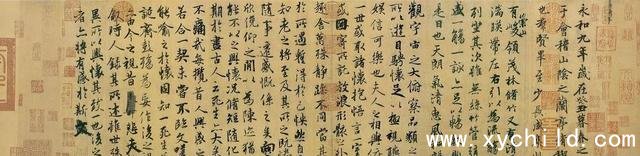 永和九年歲在癸丑暮春之
于會稽山陰之蘭亭
也群賢畢至少長咸
崇山
有峻領茂林脩竹又有清
湍暎帶左右引以為
列坐其次雖無絲竹管
盛一觴一詠亦足以暢
是日也天朗氣清惠風
觀宇宙之大俯察品類之
所以遊目騁懷足以極視聽
娛信可樂也夫人之相與俯
一世或取諸懷抱悟言一室
或因寄所託放浪形骸之外
趣舍萬殊靜躁不同當其
於所遇暫得於己怏然自
知老之將至及其所之既
隨事遷感慨係之矣向
欣俛仰之閒以為陳跡猶
能不以之興懷況脩短隨化
期於盡古人云死生亦大矣
不痛哉每攬昔人興感之
若合一契未嘗不臨文
能喻之於懷固知一死生
誕齊彭殤為妄作後之視
亦由今之視昔悲夫
敘時人錄其所述雖世殊
異所以興懷其致一也後之
者亦將有感於斯文
www.xychild.com